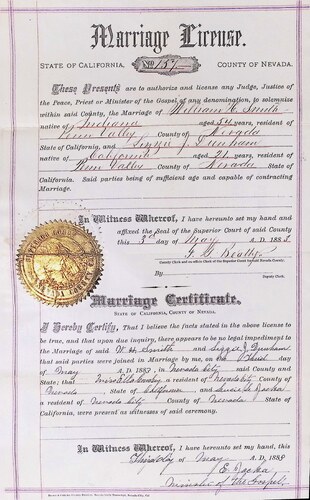 Marriage License.
STATE OF CALIFORNIA, No. 157 COUNTY OF NEVADA.
These Presents are to authorize and license any Judge, Justice of
the Peace, Priest or Minister of the Gospel of any denomination, to solemnize
within said County, the Marriage of William H. Smith
native of Indiana aged 34 years, resident of
Penn Valley County of Nevada
State of California, and Lizzie J. Dunham
native of California aged 21 years, resident of
Penn Valley County of Nevada State of
California. Said parties being of sufficient age and capable of contracting
Marriage.
In Witness Whereof, I have hereunto set my hand and
affixed the Seal of the Superior Court of said County
this 3d day of May A. D. 1883
County Clerk and ex-officio Clerk of the Superior Court
By
Deputy Clerk.
Marriage Certificate.
STATE OF CALIFORNIA, COUNTY OF NEVADA.
I Hereby Certify, That I believe the facts stated in the above license to
be true, and that upon due inquiry, there appears to be no legal impediment to
the Marriage of said W. H. Smith and Lizzie J. Dunham
that said parties were joined in Marriage by me, on the Third day
of May A. D. 1883, in Nevada City said County and
State; that Miss Ella a resident of Nevada City County of
Nevada State of California and
a resident of Nevada City County of Nevada State of
California, were present as witnesses of said ceremony.
In Witness Whereof, I have hereunto set my hand, this
Third day of May A. D. 1883
Minister of the Gospel